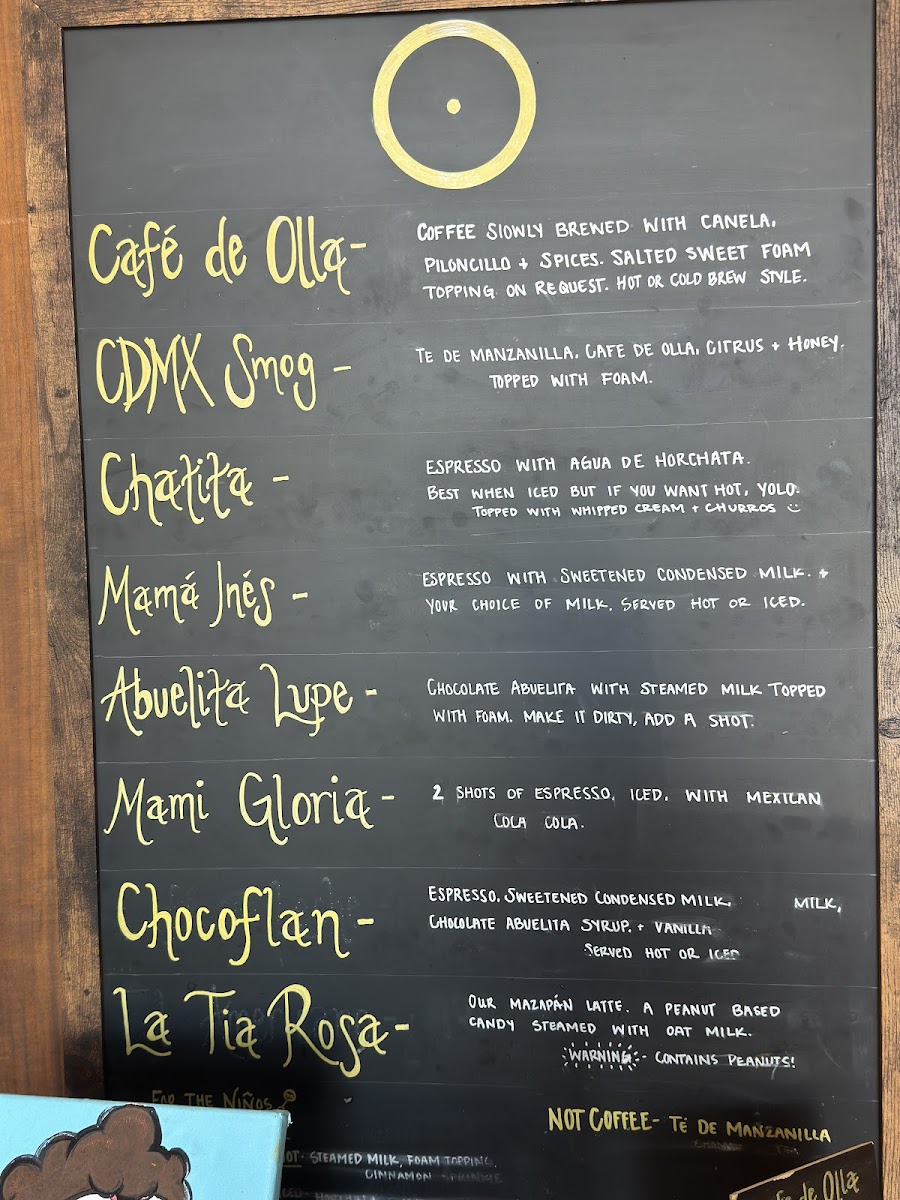 Café de Olla-
COFFEE SLOWLY BREWED WITH CANELA,
PILONCILLO + SPICES. SALTED SWEET FOAM
TOPPING ON REQUEST. HOT OR COLD BREW STYLE.
CDMX Smog -
TE DE MANZANILLA, CAFE DE OLLA, CITRUS + HONEY.
TOPPED WITH FOAM.
Chatita -
ESPRESSO WITH AGUA DE HORCHATA.
BEST WHEN ICED BUT IF YOU WANT HOT, YOLO.
TOPPED WITH WHIPPED CREAM + CHURROS
Mamá Inés -
ESPRESSO WITH SWEETENED CONDENSED MILK. +
YOUR CHOICE OF MILK. SERVED HOT OR ICED.
Abuelita Lupe -
CHOCOLATE ABUELITA WITH STEAMED MILK TOPPED
WITH FOAM. MAKE IT DIRTY, ADD A SHOT.
Mami Gloria -
2 SHOTS OF ESPRESSO, ICED, WITH MEXICAN
COLA COLA.
Chocoflan -
ESPRESSO, SWEETENED CONDENSED MILK, MILK,
CHOCOLATE ABUELITA SYRUP, + VANILLA
SERVED HOT OR ICED
La Tia Rosa-
OUR MAZAPÁN LATTE. A PEANUT BASED
CANDY STEAMED WITH OAT MILK.
WARNING - CONTAINS PEANUTS!
FOR THE NIÑOS
NOT COFFEE- TÉ DE MANZANILLA
STEAMED MILK, FOAM TOPPING,
CINNAMON SPRINKLE
de Olla